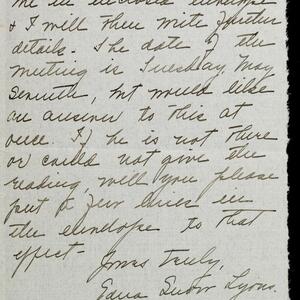 me in enclosed envelope
& I will then write further
details. The date of the
meeting is Tuesday, May
seventh, but would like
an answer to this at
once. If he is not there
or could not give the
reading, will you please
put a few lines in
the envelope to that
effect-
Yours truly,
Edna Lyons.